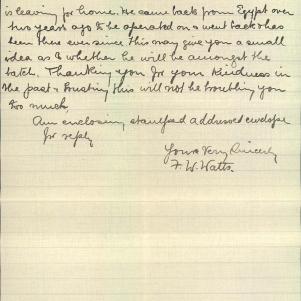 is leaving for home. He came back from Egypt over
two years ago to be operated on & went back & has
been there ever since this may give you a small
idea as to whether he will be amongst the
batch. Thanking you for your kindness in
the past & trusting this will not be troubling you
too much
Am enclosing stamped addressed envelope
for reply
Yours Very Sincerely
F. W. Watts.